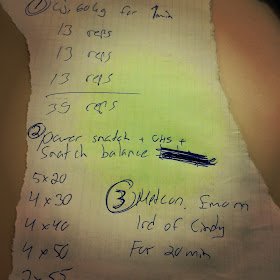 ① C&J 60kg for 1min
13 reps
13 reps
13 reps
39 reps
② power snatch + OHS +
Snatch balance
5x20
4x30
4x40
4x50
③ Metcon. Emom
1rd of Cindy
For 20min